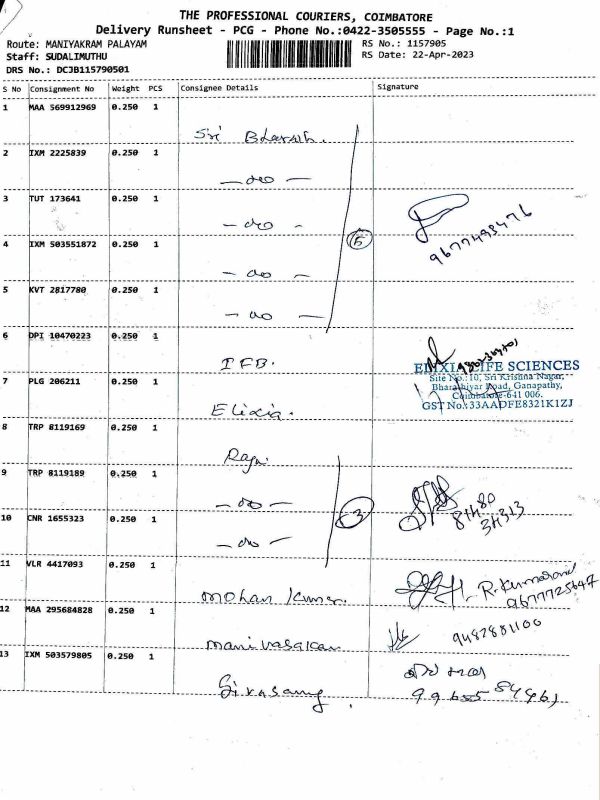 THE PROFESSIONAL COURIERS, COIMBATORE
Delivery Runsheet - PCG - Phone No.:0422-3505555 - Page No.:1
Route: MANIYAKRAM PALAYAM
RS No.: 1157905
Staff: SUDALIMUTHU
RS Date: 22-Apr-2023
DRS No.: DCJB115790501
S No Consignment No Weight PCS Consignee Details Signature
1 MAA 569912969 0.250 1
Sri Bharath.
2 IXM 2225839 0.250 1
— do —
3 TUT 173641 0.250 1
— do -
9677498476
4 IXM 503551872 0.250 1
5
- do —
5 KVT 2817780 0.250 1
- do —
6 DPI 10470223 0.250 1
IFB.
ELIXIA LIFE SCIENCES
Site No.:10, Sri Krishna Nagar,
7 PLG 206211 0.250 1
Bharathiyar Road, Ganapathy,
Coimbatore-641 006.
GST No.:33AADFE8321K1ZJ
Elixia.
8 TRP 8119169 0.250 1
Raja
9 TRP 8119189 0.250 1
- do —
3
81480
34313
10 CNR 1655323 0.250 1
- do —
11 VLR 4417093 0.250 1
Mohan Kumar.
R. Kumaran
9677725647
12 MAA 295684828 0.250 1
Manivasagan
9487881100
13 IXM 503579805 0.250 1
Sivasamy.